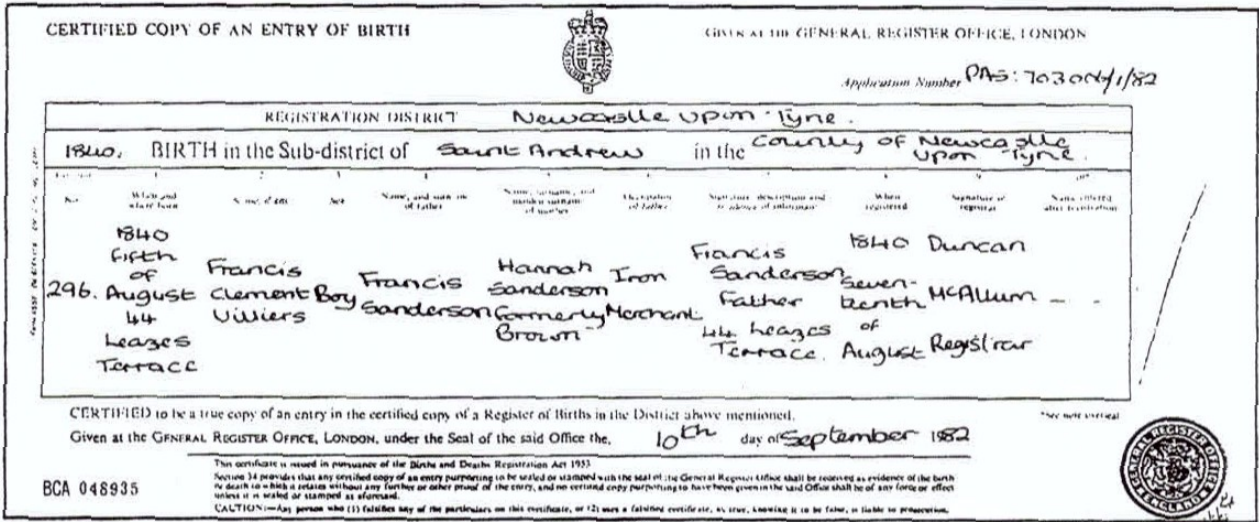 CERTIFIED COPY OF AN ENTRY OF BIRTH
GIVEN AT THE GENERAL REGISTER OFFICE, LONDON
Application Number PAS: 703004/1/82
REGISTRATION DISTRICT Newcastle upon Tyne.
1840. BIRTH in the Sub-district of Saint Andrew in the County of Newcastle upon Tyne.
No. When and where born Name, if any Sex Name, and surname of father Name, surname, and maiden surname of mother Occupation of father Signature, description and residence of informant When registered Signature of registrar Name entered after registration
296. 1840 Fifth of August 44 Leazes Terrace
Francis Clement Villiers
Boy
Francis Sanderson
Hannah Sanderson formerly Brown
Iron Merchant
Francis Sanderson Father 44 Leazes Terrace.
1840 Seventeenth of August
Duncan McAllum Registrar
CERTIFIED to be a true copy of an entry in the certified copy of a Register of Births in the District above mentioned.
*See note overleaf
Given at the GENERAL REGISTER OFFICE, LONDON, under the Seal of the said Office the, 10th day of September 1982
This certificate is issued in pursuance of the Births and Deaths Registration Act 1953
Section 34 provides that any certified copy of an entry purporting to be sealed or stamped with the seal of the General Register Office shall be received as evidence of the birth
or death to which it relates without any further or other proof of the entry, and no certified copy purporting to have been given in the said Office shall be of any force or effect
unless it is sealed or stamped as aforesaid.
CAUTION:—Any person who (1) falsifies any of the particulars on this certificate, or (2) uses a falsified certificate, as true, knowing it to be false, is liable to prosecution.
BCA 048935
GENERAL REGISTER OFFICE ENGLAND